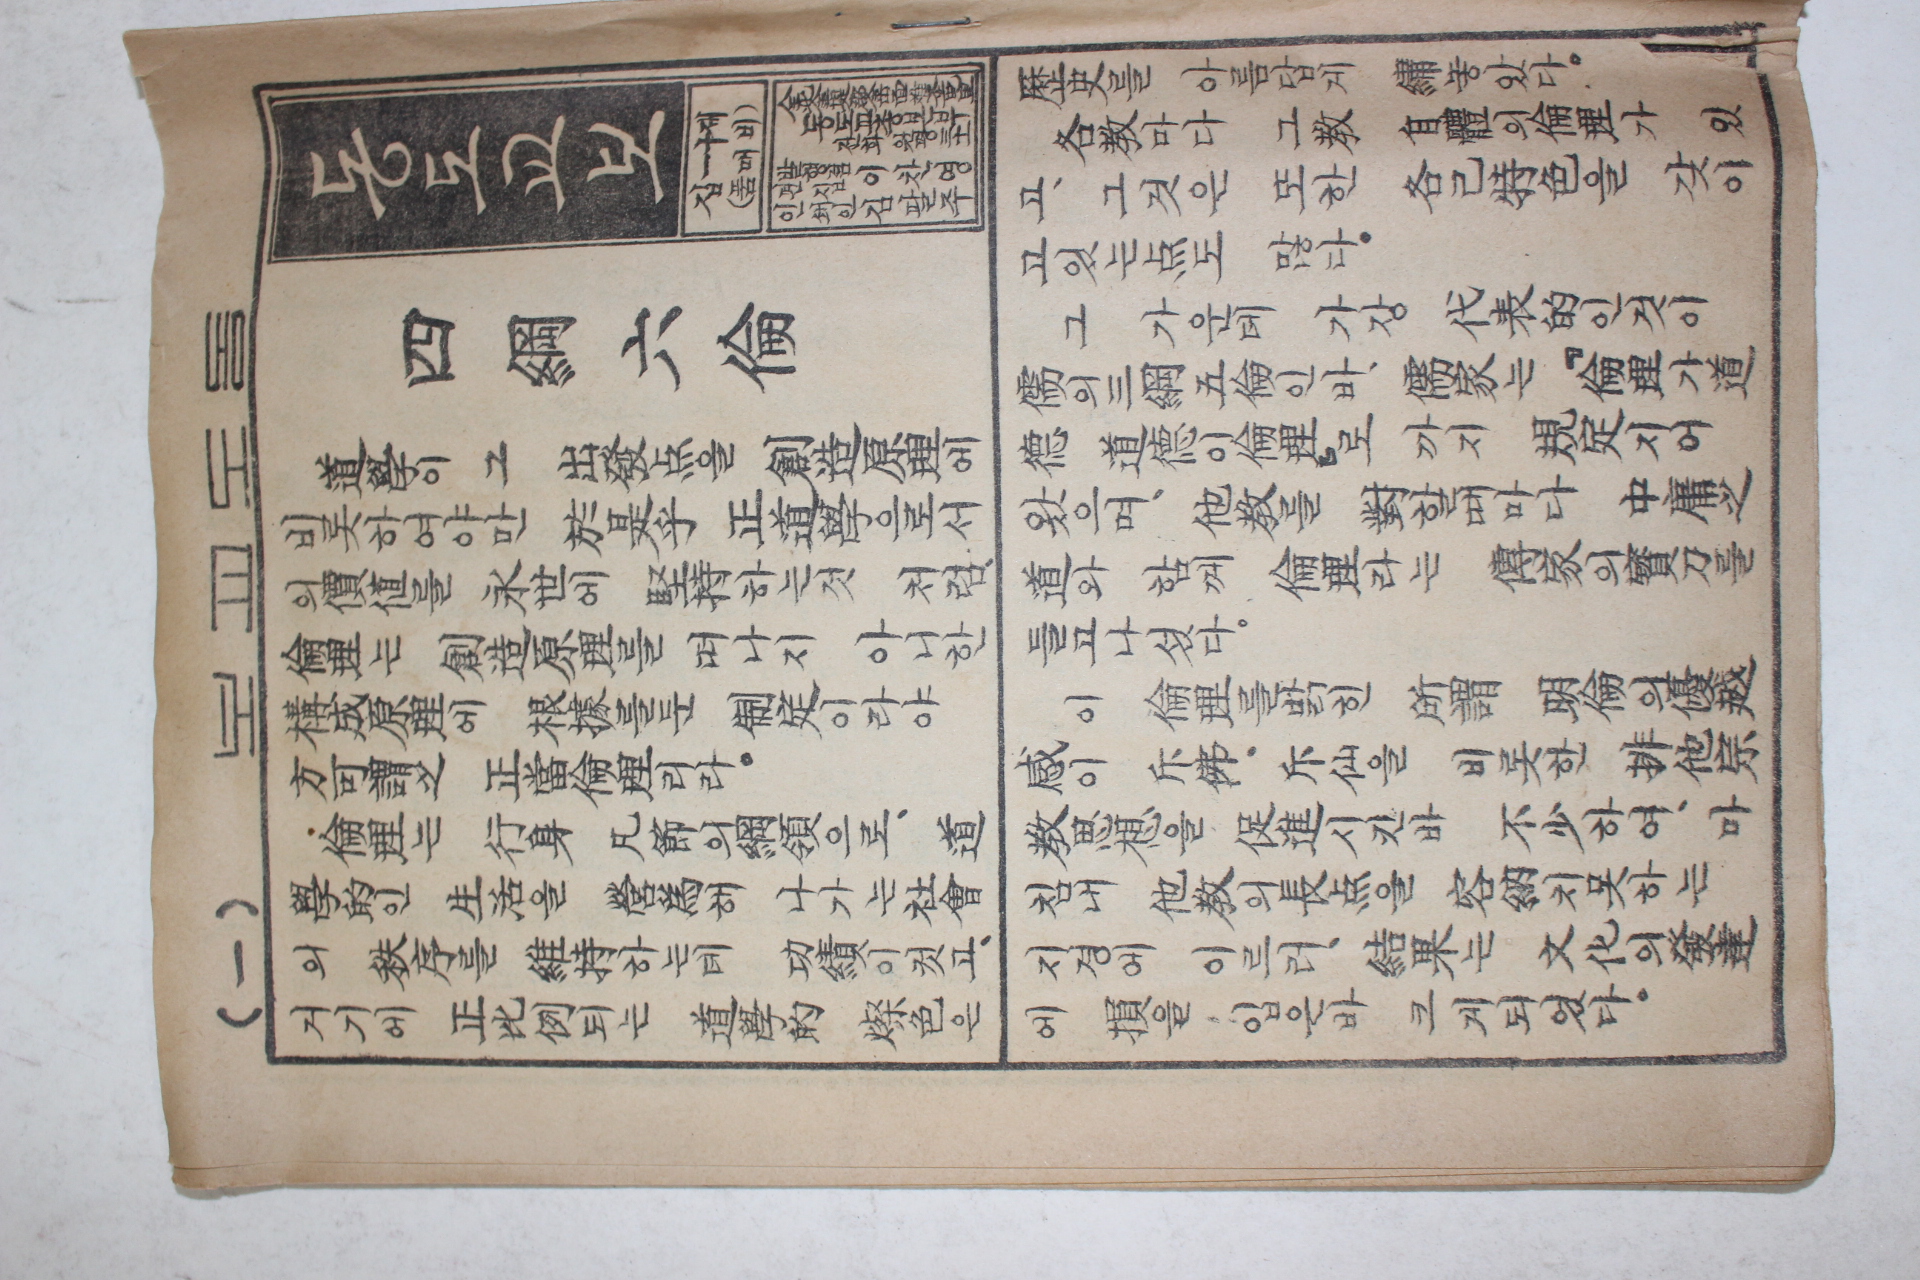 동도교보
제十一집
(비매품)
동도교총본부
이찬영
四綱六倫
道學이 그 出發点을 創造原理에
비롯하여야만 於是乎 正道學으로서
의價值를 永世에 堅持하는것 처럼、
倫理는 創造原理를 떠나지 아니한
構成原理에 根據를둔 制定이라야
方可謂之 正當倫理리라。
倫理는 行身 凡節의綱領으로、道
學的인 生活을 營爲해 나가는社會
의 秩序를 維持하는데 功績이컷고、
거기에 正比例되는 道學的 燦色은
歷史를 아름답게 繡놓았다。
各敎마다 그敎 自體의倫理가 있
고、그것은 또한 各己特色을 갖이
고있는点도 많다。
그 가운데 가장 代表的인것이
儒의三綱五倫인바、儒家는『倫理가道
德 道德이倫理』로 까지 規定지어
왔으며、他敎를 對할때마다 中庸之
道와 함께 倫理라는 傳家의寶刀를
들고나섰다。
이 倫理를밝힌 所謂 明倫의優越
感이 斥佛·斥仙을 비롯한 排他宗
敎思想을 促進시킨바 不少하여、마
침내 他敎의長点을 容納치못하는
지경에 이르러、結果는 文化의發達
에 損을 입은바 크게되었다。
(一)